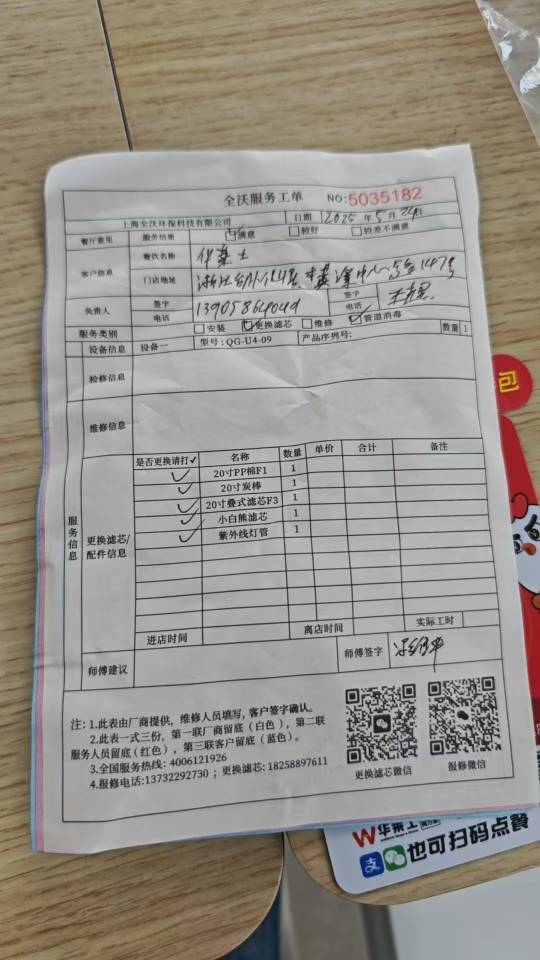 全沃服务工单 NO:5035182
上海全沃环保科技有限公司 日期 2025 年 5 月
餐厅意见 服务结果 满意 较好 较差不满意
客户信息 餐饮名称 华莱士
门店地址 浙江 147号
负责人 签字 电话 签字 电话
服务类别 安装 更换滤芯 维修 管道消毒
设备信息 设备一 型号: QG-U4-09 产品序列号: 数量 1
检修信息
维修信息
服务信息
更换滤芯/配件信息
是否更换请打✓ 名称 数量 单价 合计 备注
✓ 20寸PP棉F1 1
✓ 20寸炭棒 1
✓ 20寸叠式滤芯F3 1
✓ 小白熊滤芯 1
✓ 紫外线灯管 1
进店时间 离店时间 实际工时
师傅建议 师傅签字
注: 1.此表由厂商提供，维修人员填写，客户签字确认。
2.此表一式三份，第一联厂商留底（白色），第二联
服务人员留底(红色），第三联客户留底（蓝色）。
3.全国服务热线: 4006121926
4.报修电话:13732292730 ; 更换滤芯: 18258897611
更换滤芯微信 报修微信
包
华莱士
也可扫码点餐